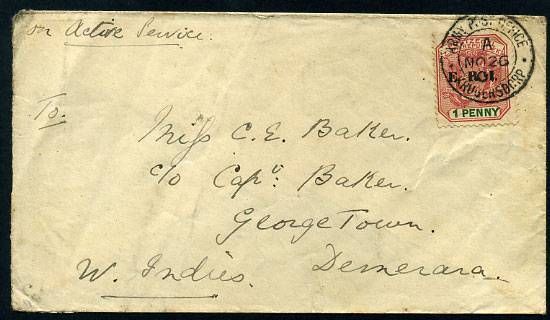 on Active Service.
ARMY P.S. OFFICE
A
NO 26
KRUGERSDORP
E.R.I.
1 PENNY
To
Miss C. E. Baker.
c/o Capt. Baker.
George Town.
Demerara.
W. Indies.